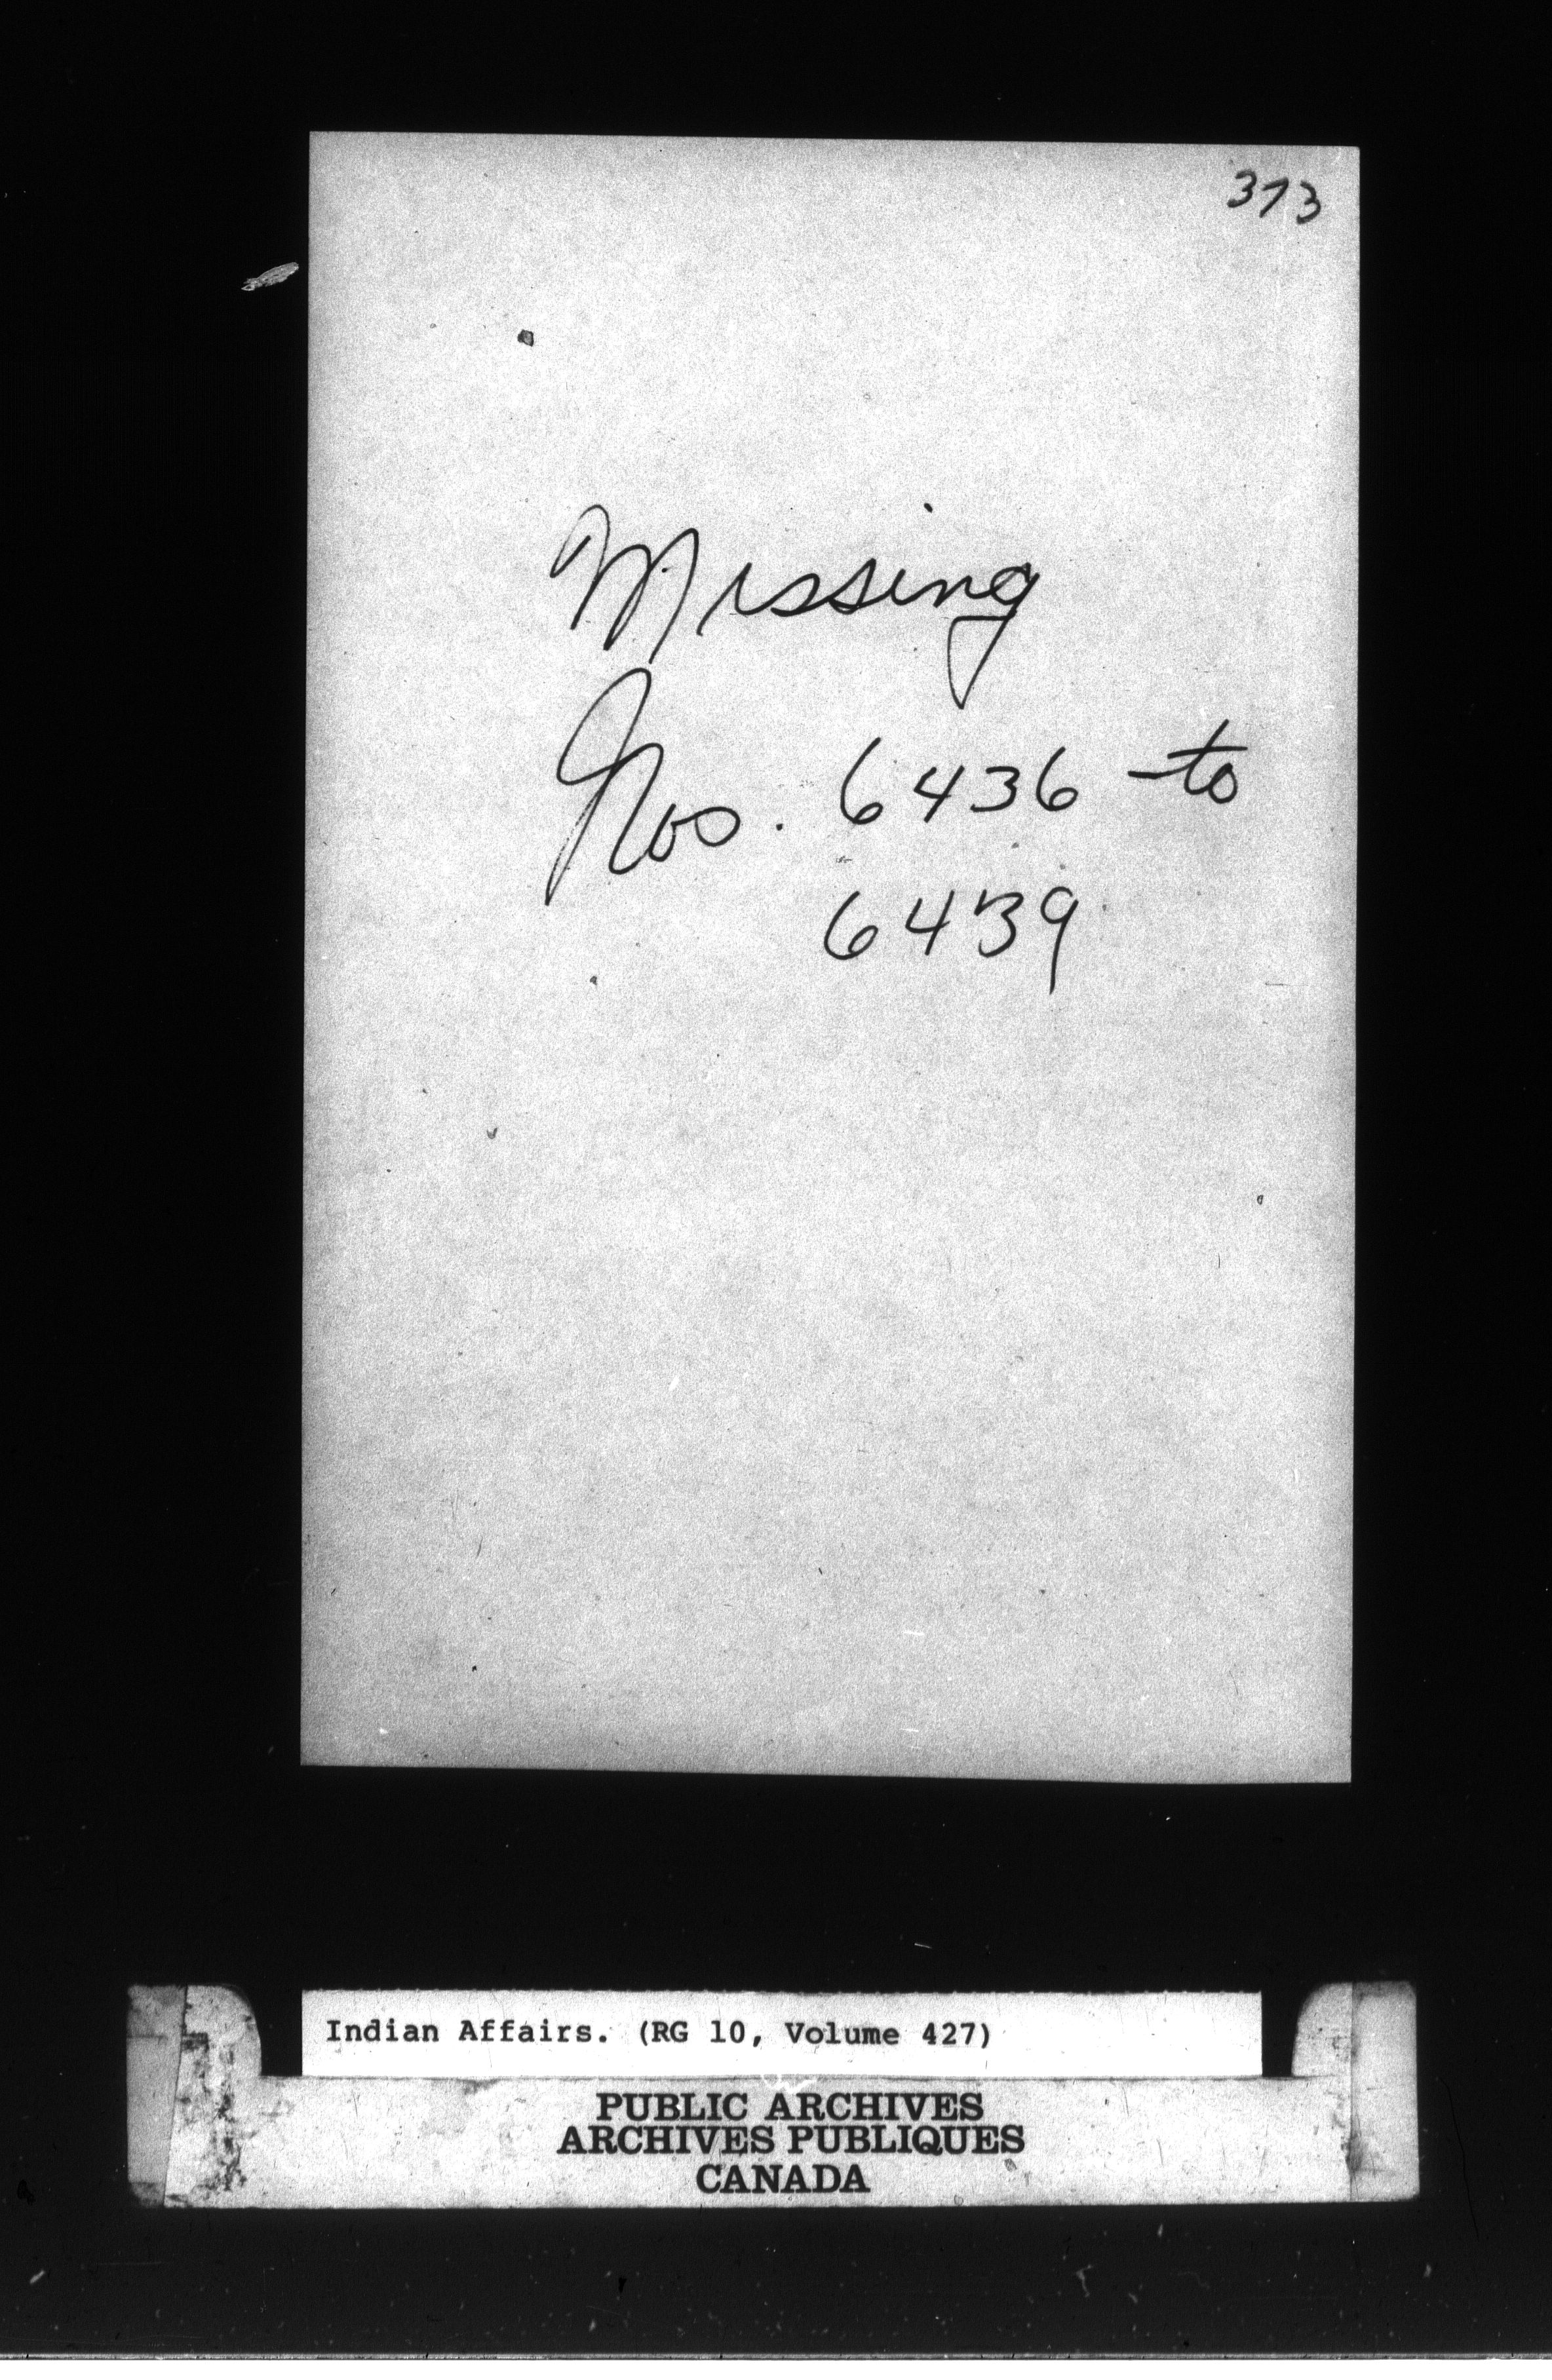 373
Missing
Nos. 6436 to
6439
Indian Affairs. (RG 10, Volume 427)
PUBLIC ARCHIVES
ARCHIVES PUBLIQUES
CANADA